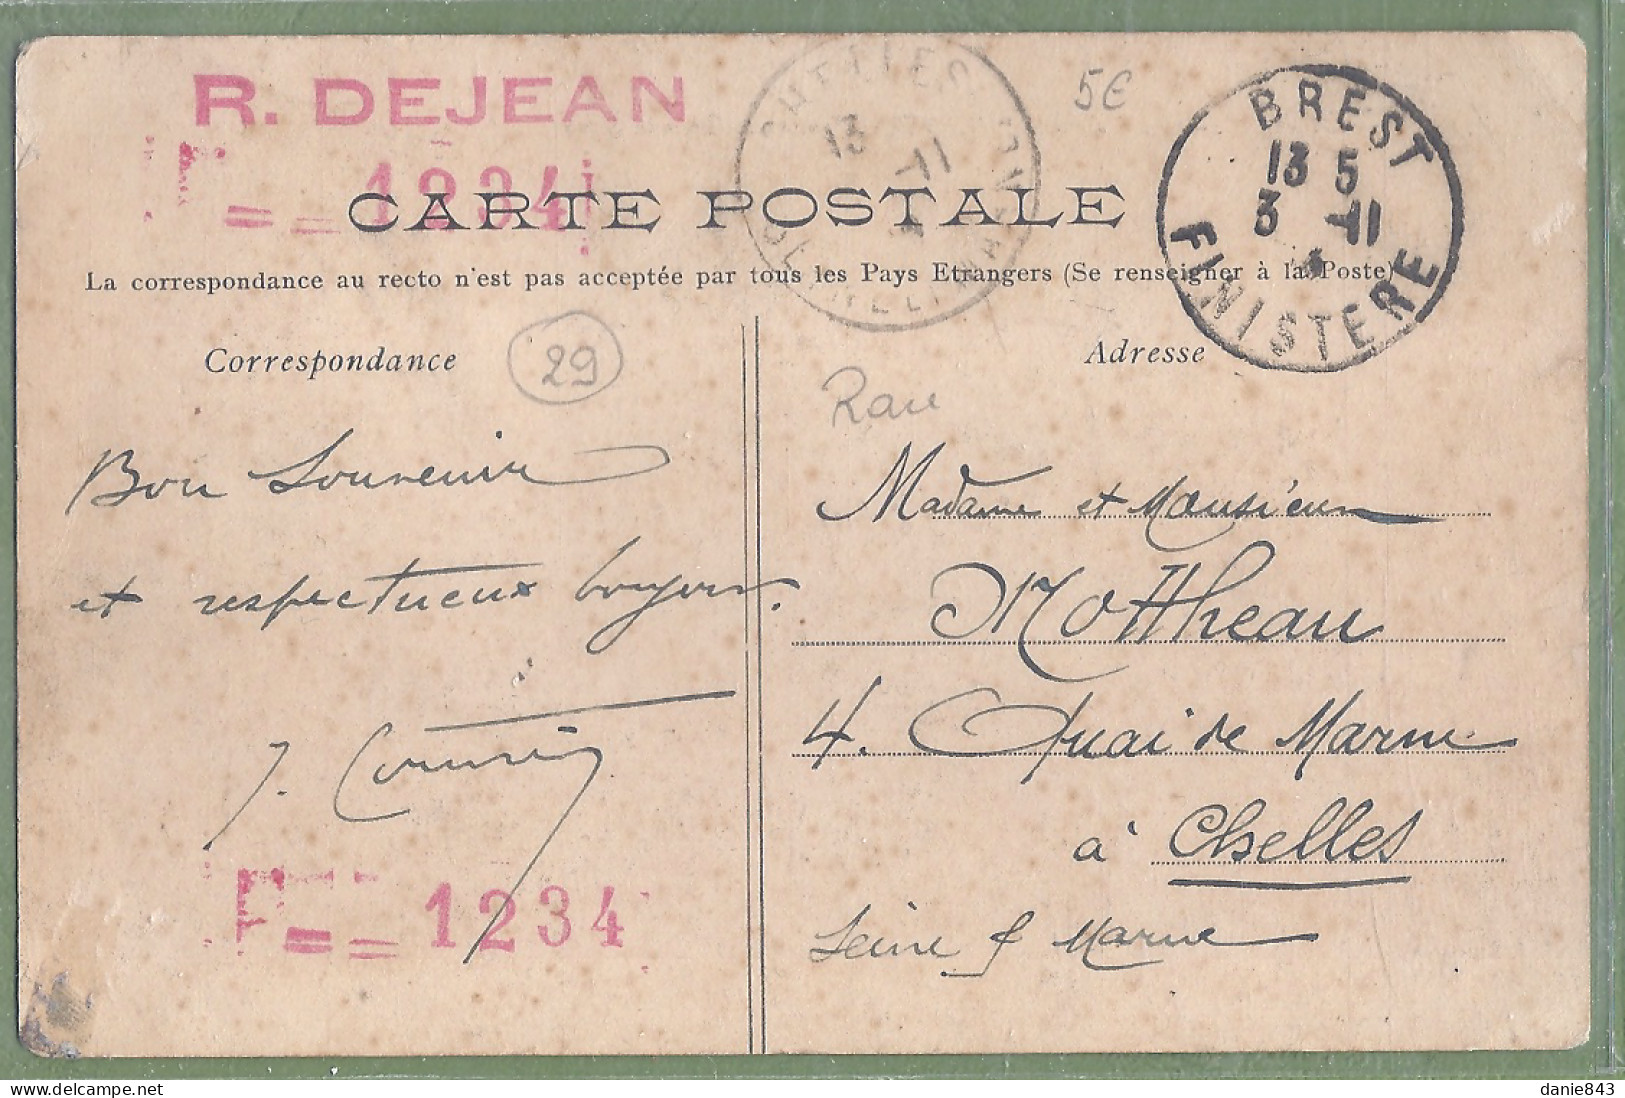 R. DEJEAN
1234
CARTE POSTALE
La correspondance au recto n'est pas acceptée par tous les Pays Etrangers (Se renseigner à la Poste)
CHELLES
13
-11
BREST
13 5
3 -11
FINISTERE
5€
Correspondance
29
Adresse
Rare
Bon Souvenir
et respectueux bonjours.
J.
F 1234
Madame et Monsieur
Mottheau
4. Quai de Marne
à Chelles
Seine & Marne
danie843